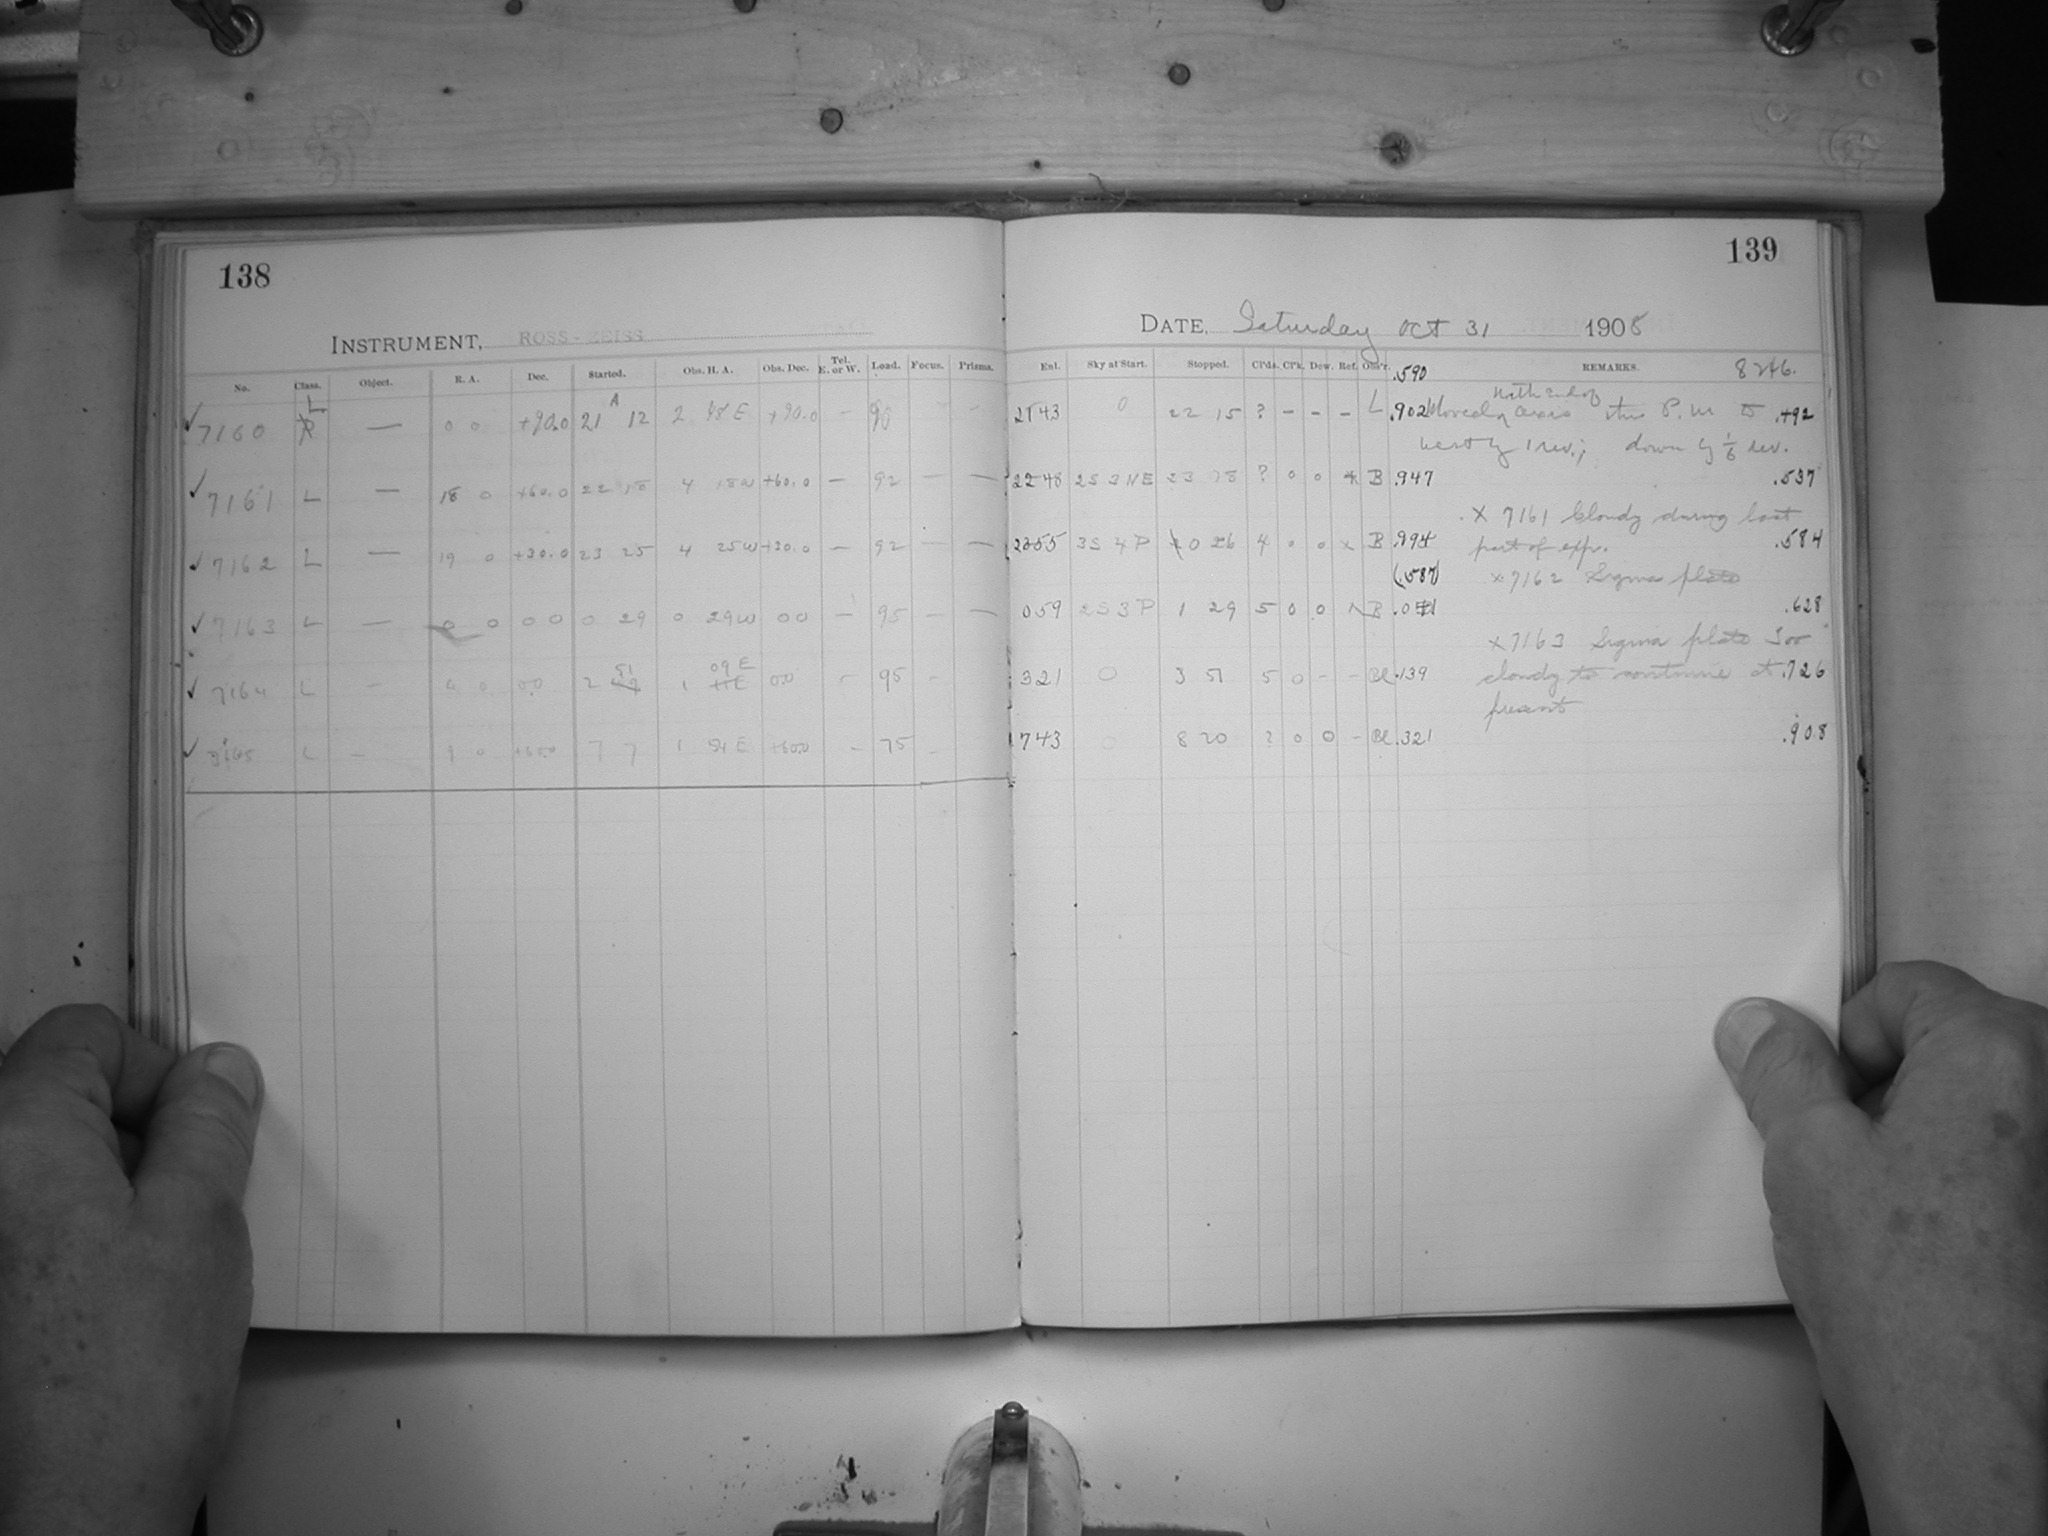 138
INSTRUMENT, ROSS-ZEISS
No. Class. Object. R. A. Dec. Started. Obs. H. A. Obs. Dec. Tel. E. or W. Load. Focus. Prisms.
L
✓ 7160 — 0 0 +90.0 21 12 2 48 E +90.0 — 90
✓ 7161 L — 18 0 +60.0 22 18 4 18 W +60.0 — 92 — —
✓ 7162 L — 19 0 +30.0 23 25 4 25 W +30.0 — 92 — —
✓ 7163 L — 0 0 0 0 0 29 0 29 W 00 — 95 — —
51 09 E
✓ 7164 L — 4 0 00 2 1 00 - 95 -
✓ L — 9 0 +60.0 7 7 1 54 E +60.0 - 75 -
139
DATE, Saturday Oct 31 1908
Enl. Sky at Start. Stopped. Cl'ds. Cl'k. Dew. Ref. Obs'r. .590 REMARKS. 8246.
North End of
2143 0 22 15 ? - - - L .902 Moved axis this P.M. to .492
west by 1 rev.; down by 1/6 rev.
2248 2S3NE 23 18 ? 0 0 * B .947 .537
x 7161 Cloudy during last
2355 3S4P 0 26 4 0 0 x B .994 part of exp. .584
(.587) x 7162 Sigma plate
059 2S3P 1 29 5 0 0 B .628
x 7163 Sigma plate Too
321 0 3 51 5 0 - - Bl .139 cloudy to continue at .726
present
743 0 8 20 ? 0 0 - Bl .321 .908